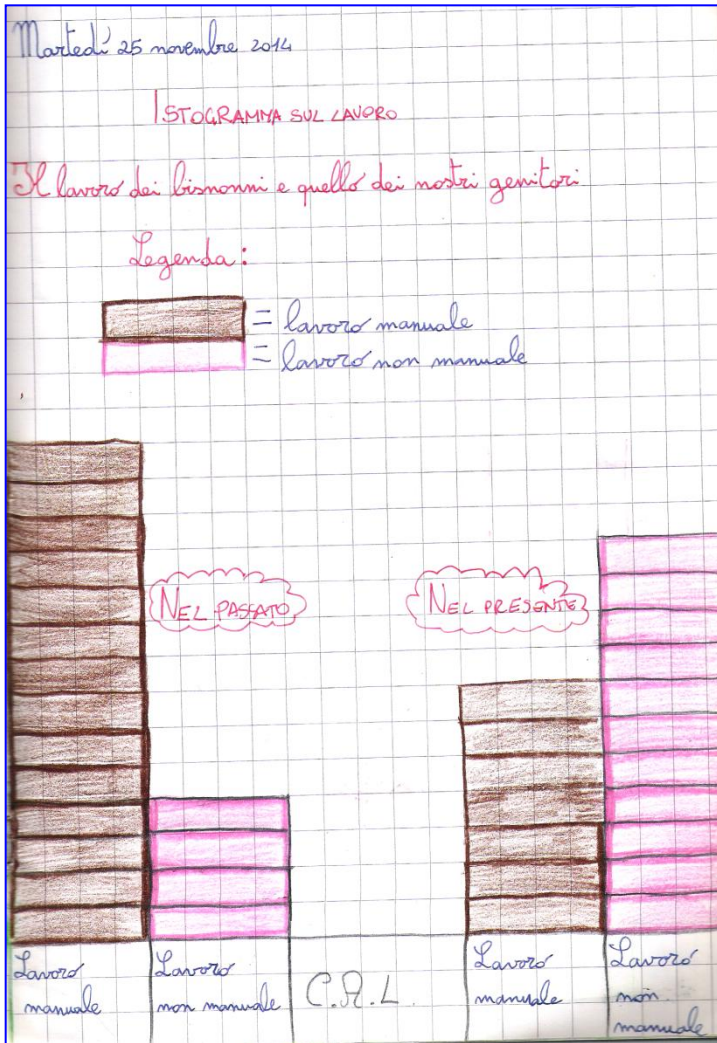 Martedì 25 novembre 2014
ISTOGRAMMA SUL LAVORO
Il lavoro dei bisnonni e quello dei nostri genitori.
Legenda:
= lavoro manuale
= lavoro non manuale
NEL PASSATO
NEL PRESENTE
Lavoro
manuale
Lavoro
non manuale
C.R.L.
Lavoro
manuale
Lavoro
non
manuale